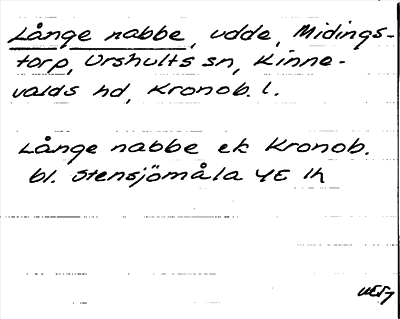 Långe nabbe, udde, Midings-
torp, Urshults sn, Kinne-
valds hd, Kronob. l.
Långe nabbe ek Kronob.
bl. Stensjömåla 4E 1h